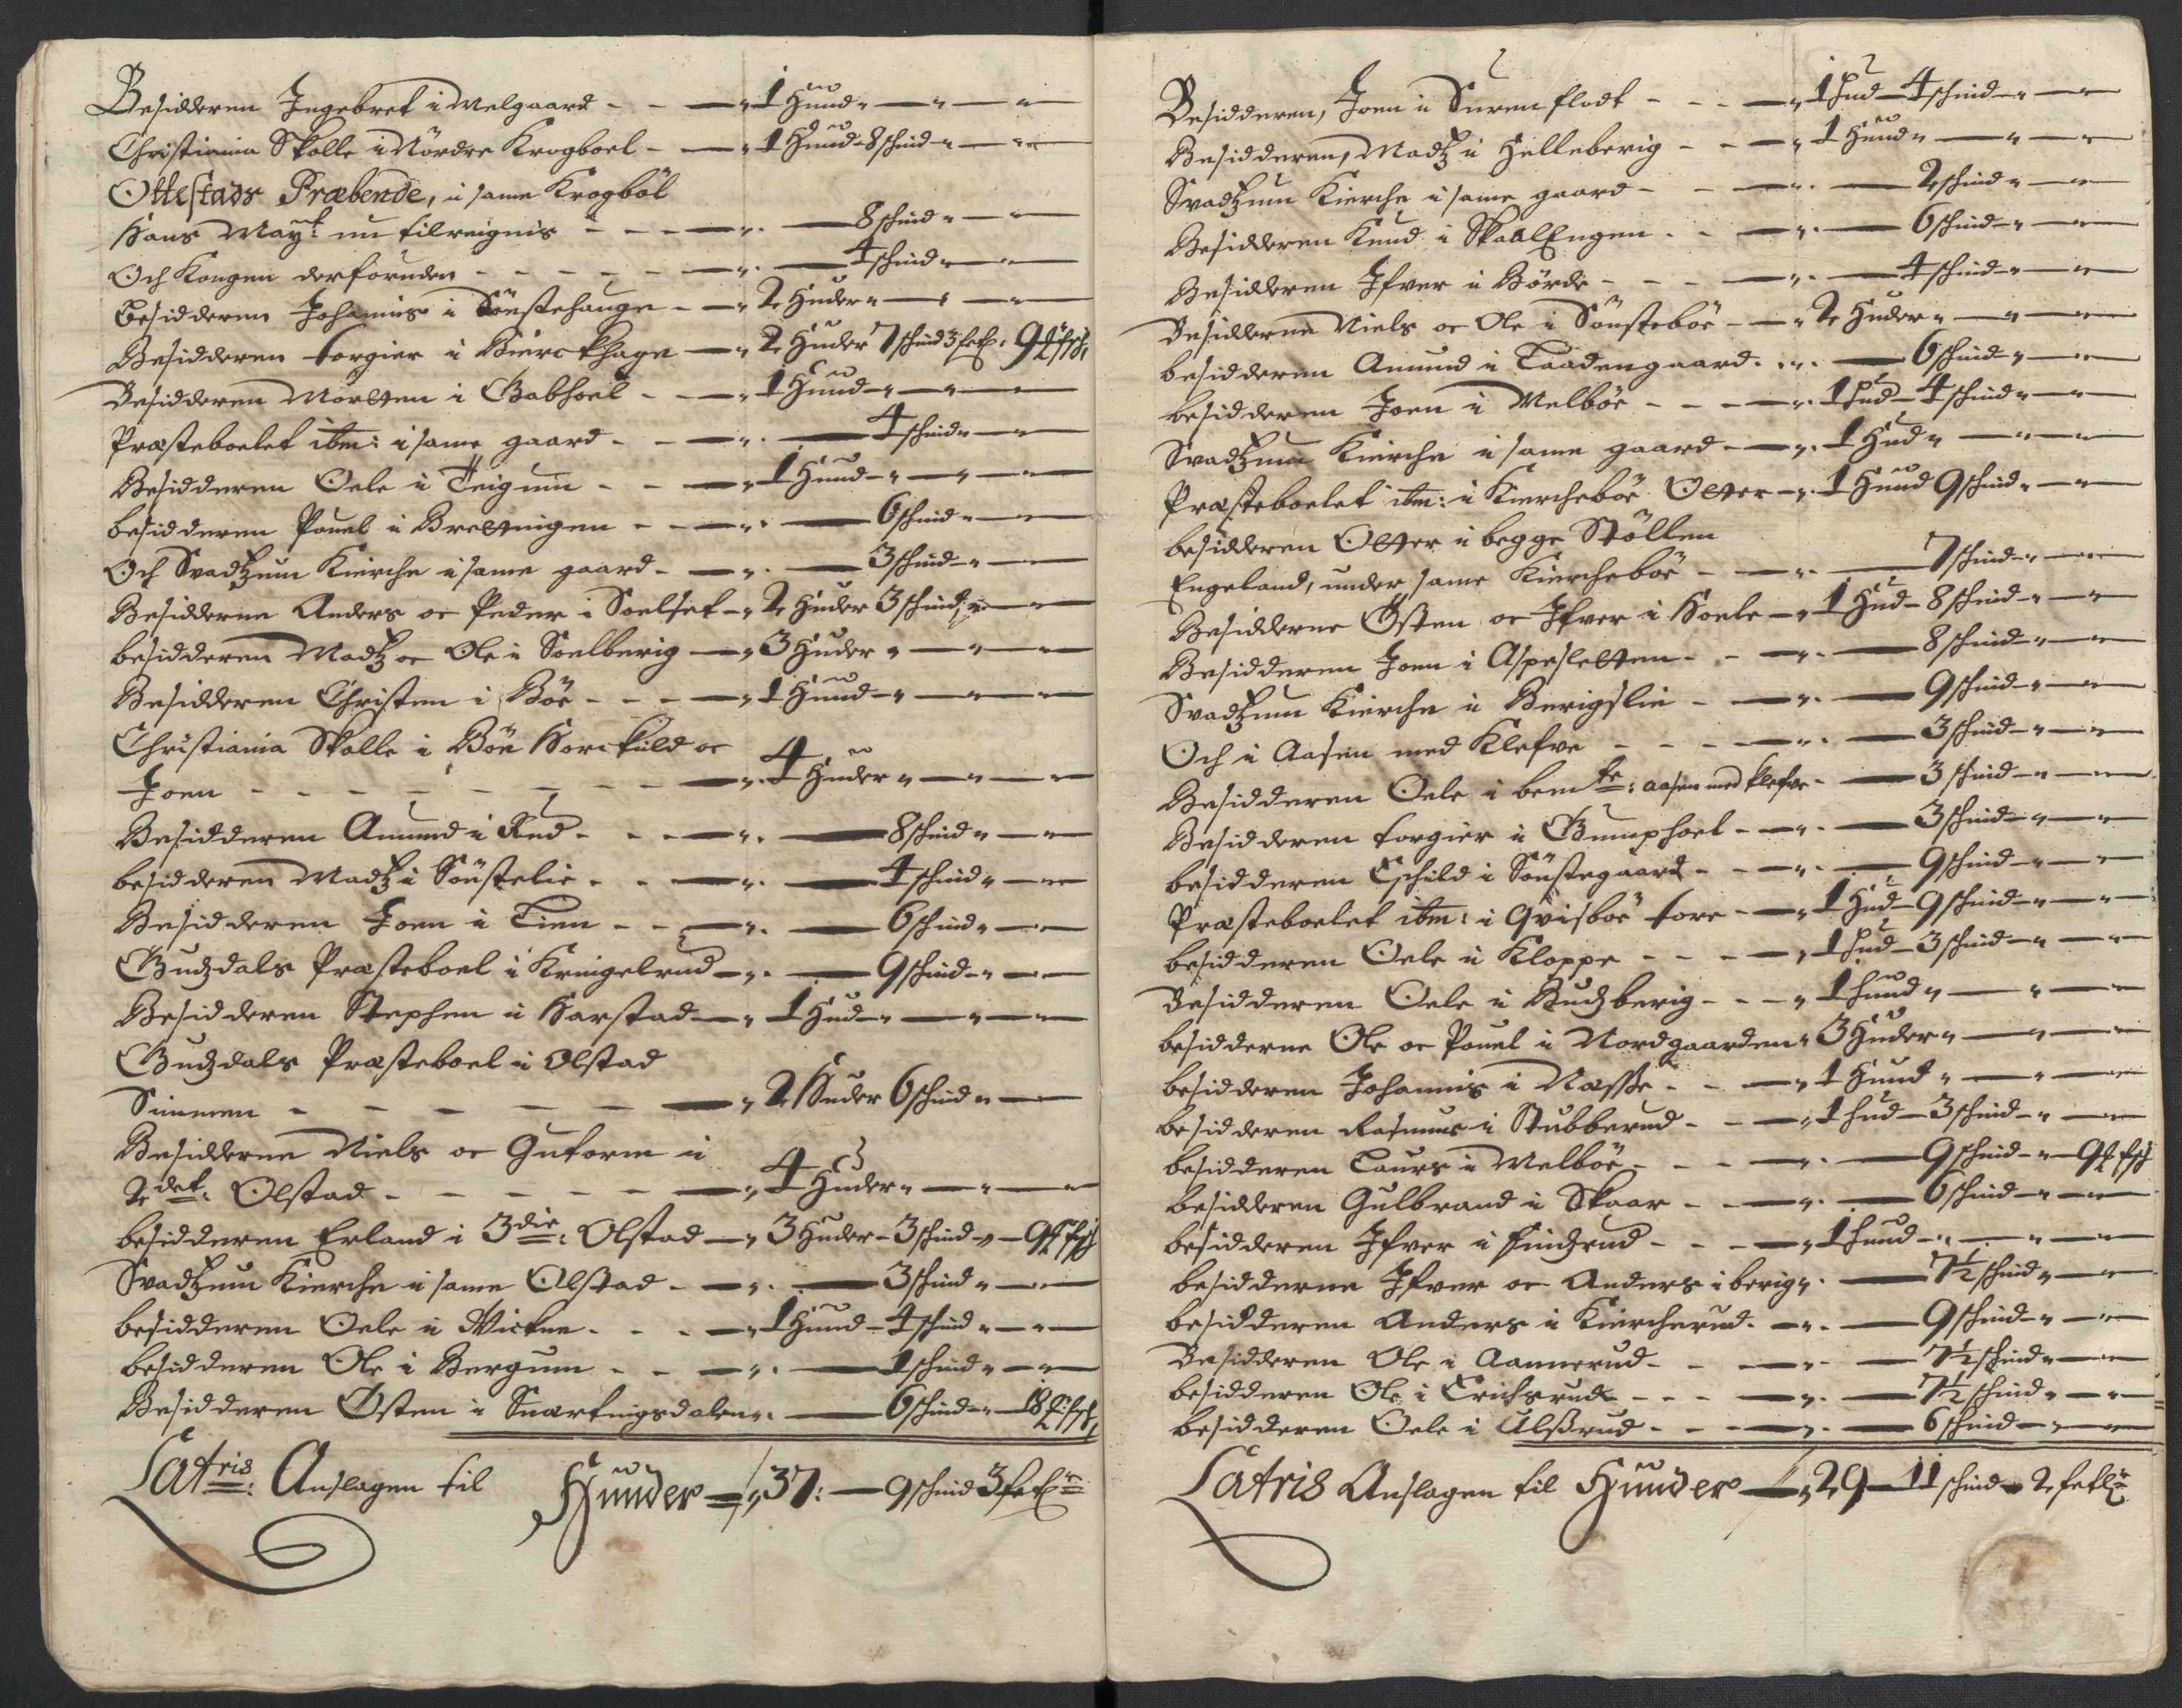 Besidderen Ingebret i Melgaard - - — " 1 Huud " — " — "
Christiania Skolle i Nördre Krogboel - — " 1 Huud - 8 schind - " — "
Ottestads Præbende, i same Krogböl
Hans Mayt: nu tilreignis - - - — " — 8 schind " — "
Och Kongen derforuden - - - - - — " — 4 schind — "
Besidderen Johannis i Sönstehauge - — " 2 Huder " — " — "
Besidderen Torgier i Bierckhage — " 2 Huder 7 schind 3 : 9
Besidderen Morten i Gabhoel - - — " 1 Huud - " — " — "
Præsteboelet ibm: i same gaard - - — " — 4 schind " — "
Besidderen Oele i Teigum - - — " 1 Huud - " — " — "
besidderen Pouel i Bretningen - - — " — 6 schind " — "
Och Svadtzum Kierche i same gaard - — " — 3 schind - " — "
Besidderne Anders oc Peder i Soelset - " 2 Huder 3 schind " — "
besidderen Madtz oc Ole i Soelberig — " 3 Huder " — " — "
Besidderen Christen i Böe - - - — " 1 Huud - " — " — "
Christiania Skolle i Böe Horckild oc
Joen - - - - - - - - — " 4 Huder " — " — "
Besidderen Amund i Rud - - - — " — 8 schind " — "
besidderen Madtz i Sönstelie - - — " — 4 schind " — "
Besidderen Joen i Lien - - — " — 6 schind " — "
Gudzdals Præsteboel i Kringelrud — " — 9 schind - " — "
Besidderen Stephen i Harstad — " 1 Hud - " — " — "
Gudzdals Præsteboel i Olstad
Simmen - - - - - — " 2 Huder 6 schind " — "
Besidderne Niels oc Gutorm i
2det: Olstad - - - - - — " 4 Huder " — " — "
besidderen Erland i 3die: Olstad — " 3 Huder - 3 schind - " - 9
Svadtzum Kierche i same Olstad - — " — 3 schind " — "
besidderen Oele i Wickne - - - — " 1 Huud - 4 schind " — "
besidderen Ole i Bergum - - - — " — 1 schind " — "
Besidderen Østen i Snertingsdalen " — 6 schind - " — 18
Latris: Anslagen til Huuder — " 37: — 9 schind 3
Besidderen, Joen i Surenflodt - - - — " 1 Hud - 4 schind - " — "
Besidderen, Madtz i Helleberig - - — " 1 Huud " — " — "
Svadtzum Kierche i same gaard - - — " — 2 schind " — "
Besidderen Knud i SkaalEngen - - — " — 6 schind - " — "
Besidderen Ifver i Börde - - - — " — 4 schind - " — "
Besidderne Niels oc Ole i Sönsteböe - — " 2 Huder " — " — "
besidderen Amund i Laadengaard - " — 6 schind - " — "
besidderen Joen i Melböe - - - — " 1 Hud - 4 schind " — "
Svadtzum Kierche i same gaard - — " 1 Hud " — " — "
Præsteboelet ibm: i Kiercheböe Otter - " 1 Huud 9 schind " — "
besidderen Otter i begge Stöllen
Engeland, under same Kiercheböe - — " — 7 schind - " — "
Besidderne Östen oc Ifver i Hoele - " 1 Hud - 8 schind - " — "
Besidderen Joen i Aspesletten - - — " — 8 schind - " — "
Svadtzum Kierche i Berigslie - — " — 9 schind - " — "
Och i Aasen med Klefve - - - - — " — 3 schind - " — "
Besidderen Oele i bemte: aasen med klefve - — 3 schind - " — "
Besidderen Torgier i Gumphoel - — " — 3 schind - " — "
besidderen Eschild i Sönstegaard - — " — 9 schind - " — "
Præsteboelet ibm: i Qvisböe Tore - — " 1 Hud - 9 schind - " — "
besidderen Oele i Kloppe - - - — " 1 Hud - 3 schind - " — "
Besidderen Oele i Rudzberig - - - " 1 Huud " — " — "
besidderne Ole oc Pouel i Nordgaarden " 3 Huder " — " — "
besidderen Johannis i Næsse - - — " 1 Huud " — " — "
besidderen Rasmus i Stubberud - - — " 1 Hud - 3 schind - " — "
besidderen Laurs i Melböe - - - — " — 9 schind - " - 9
besidderen Gulbrand i Skaar - - — " — 6 schind - " — "
besidderen Ifver i Findzrud - - - — " 1 Huud - " — " — "
besidderne Ifver oc Anders i berig " — 7½ schind " — "
besidderen Anders i Kiercherud - — " — 9 schind - " — "
Besidderen Ole i Aannerud - - — " — 7½ schind " — "
besidderen Ole i Erichsrud - - - — " — 7½ schind " — "
besidderen Oele i Ulssrud - - - — " — 6 schind - " — "
Latris Anslagen til Huuder — " 29 - 11 schind - 2